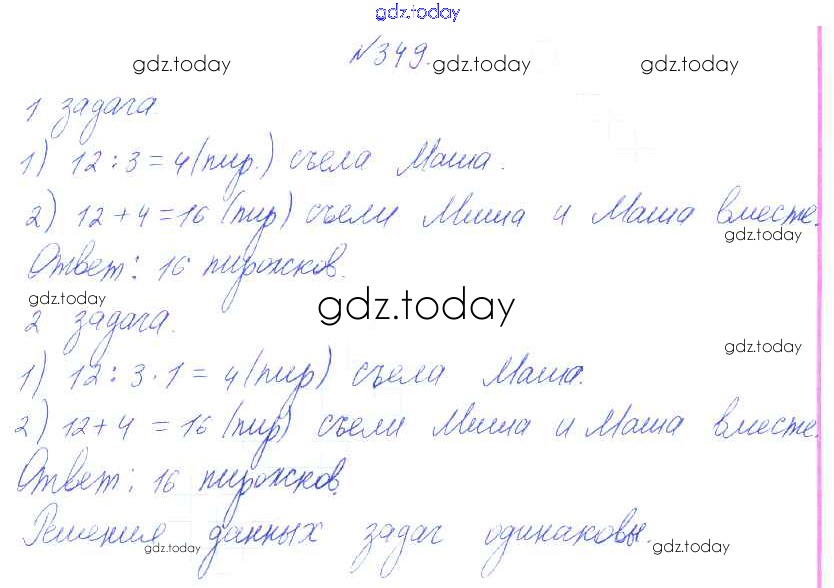 gdz.today
№349.
gdz.today gdz.today gdz.today
1 задача.
1) 12 : 3 = 4 (пир.) съела Маша.
2) 12 + 4 = 16 (пир) съели Миша и Маша вместе.
gdz.today
Ответ: 16 пирожков.
gdz.today
gdz.today
2 задача.
gdz.today
1) 12 : 3 · 1 = 4 (пир) съела Маша.
2) 12 + 4 = 16 (пир) съели Миша и Маша вместе.
Ответ: 16 пирожков.
Решения данных задач одинаковы.
gdz.today gdz.today